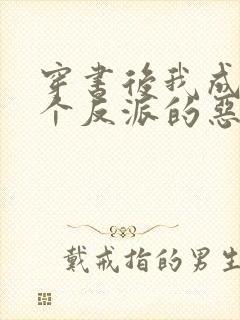 穿書後我成
个反派的惡
戴戒指的男生